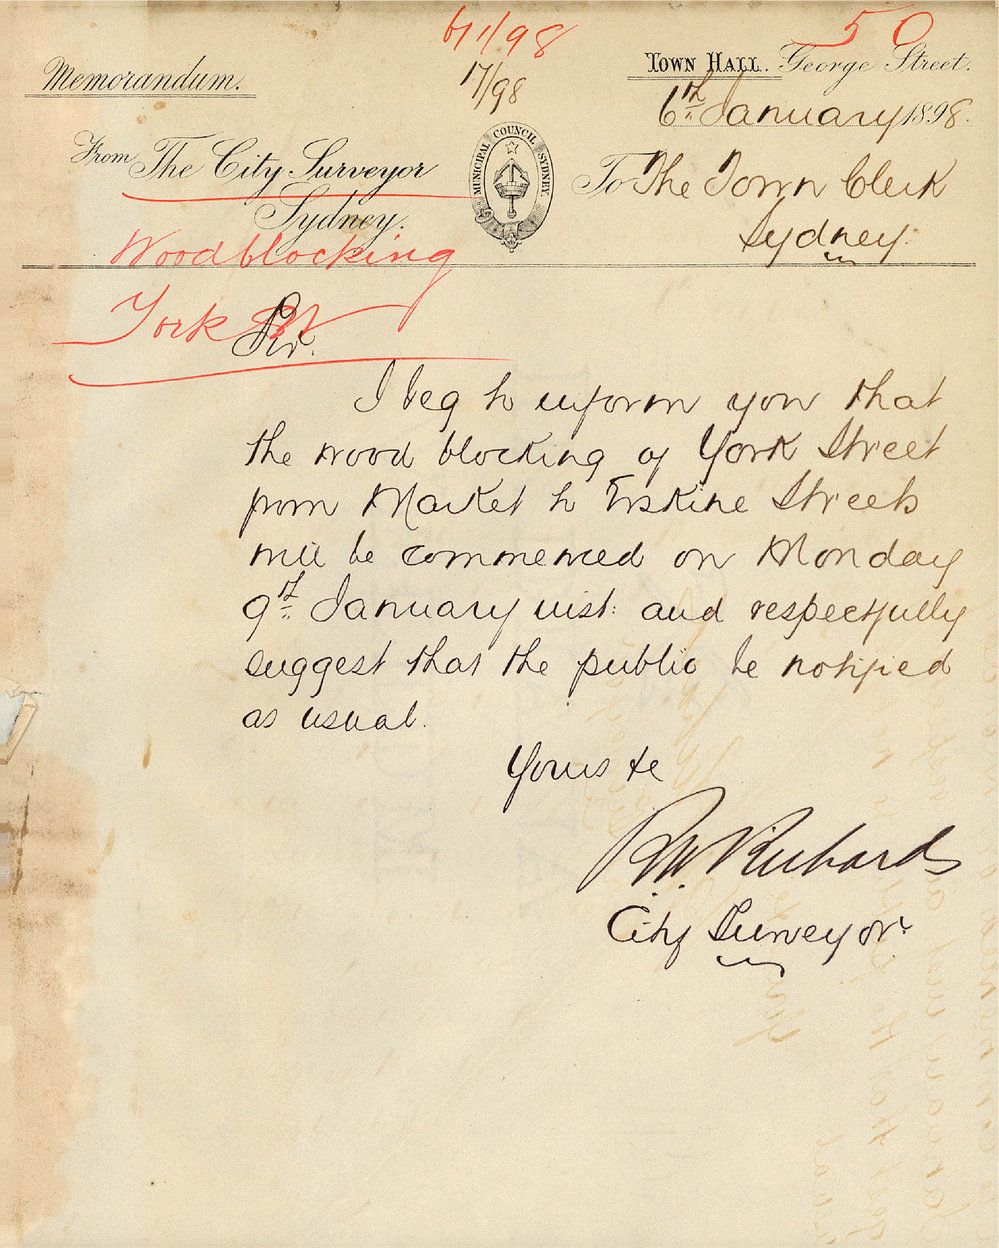 6/1/98
50
17/98
Memorandum.
TOWN HALL. George Street.
6th January 1898.
From The City Surveyor
Sydney.
MUNICIPAL COUNCIL SYDNEY
To The Town Clerk
Sydney.
Woodblocking
York St
Sir.
I beg to inform you that
the wood blocking of York Street
from Market to Erskine Streets
will be commenced on Monday
9th January inst: and respectfully
suggest that the public be notified
as usual.
Yours &c
R.W. Richards
City Surveyor.